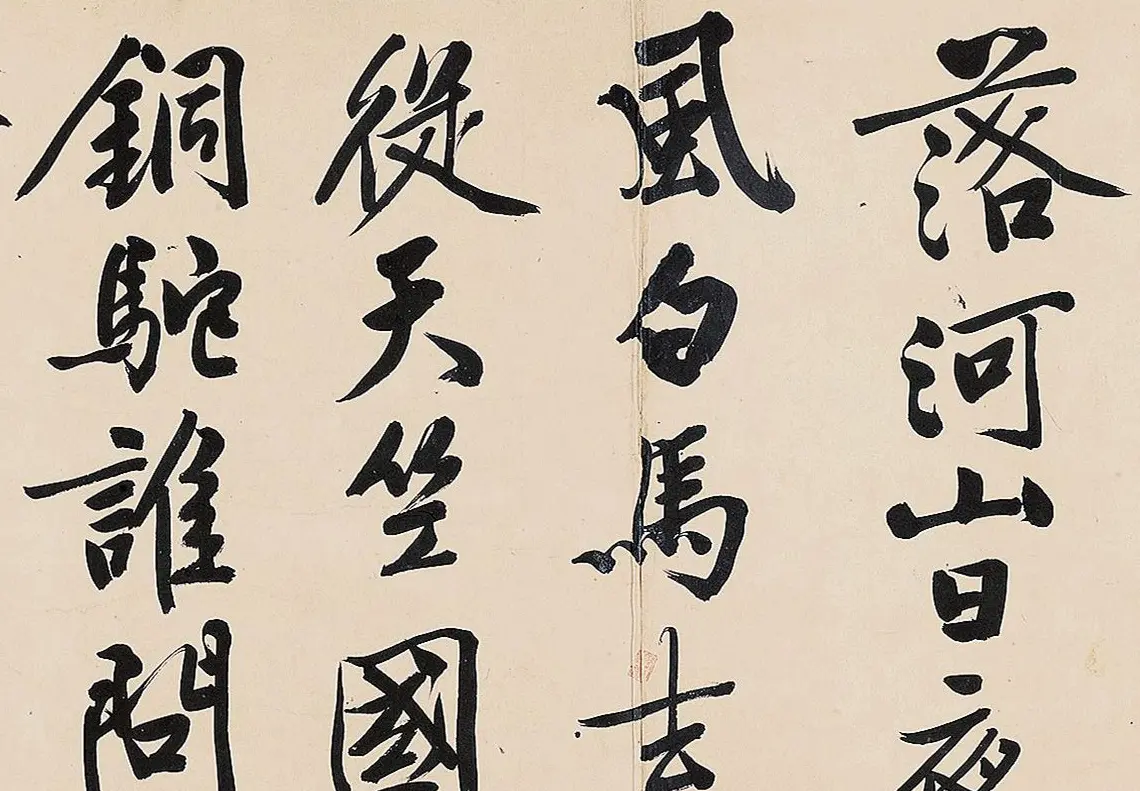 落河山日夜
風白馬去
從天竺國
銅駝誰問